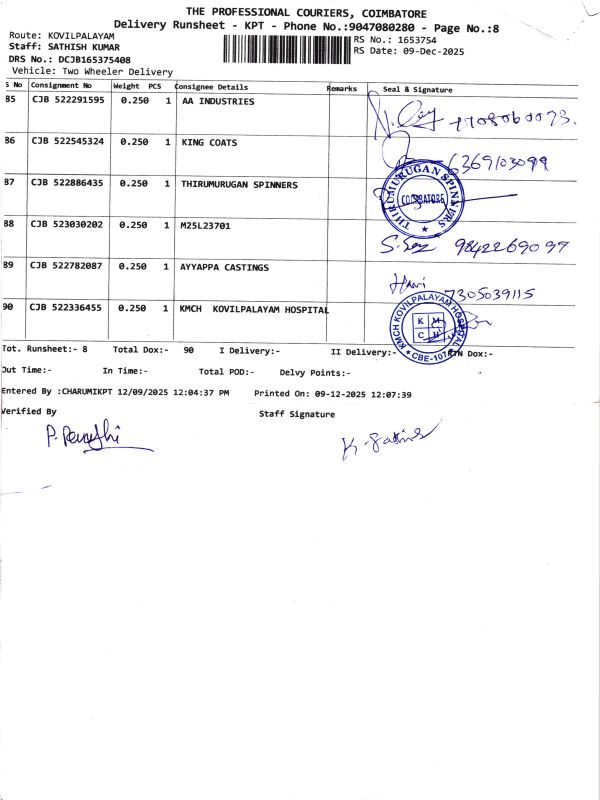 THE PROFESSIONAL COURIERS, COIMBATORE
Delivery Runsheet - KPT - Phone No.:9047080280 - Page No.:8
Route: KOVILPALAYAM
RS No.: 1653754
Staff: SATHISH KUMAR
RS Date: 09-Dec-2025
DRS No.: DCJB165375408
Vehicle: Two Wheeler Delivery
S No Consignment No Weight PCS Consignee Details Remarks Seal & Signature
85 CJB 522291595 0.250 1 AA INDUSTRIES
86 CJB 522545324 0.250 1 KING COATS
6369103099
87 CJB 522886435 0.250 1 THIRUMURUGAN SPINNERS
THIRUMURUGAN SPINNERS
COIMBATORE
88 CJB 523030202 0.250 1 M25L23701
9842269097
89 CJB 522782087 0.250 1 AYYAPPA CASTINGS
Hari
7305039115
90 CJB 522336455 0.250 1 KMCH KOVILPALAYAM HOSPITAL
KMCH KOVILPALAYAM HOSPITAL
K M
C H
CBE-107
Tot. Runsheet:- 8 Total Dox:- 90 I Delivery:- II Delivery:- RTN Dox:-
Out Time:- In Time:- Total POD:- Delvy Points:-
Entered By :CHARUMIKPT 12/09/2025 12:04:37 PM Printed On: 09-12-2025 12:07:39
Verified By Staff Signature